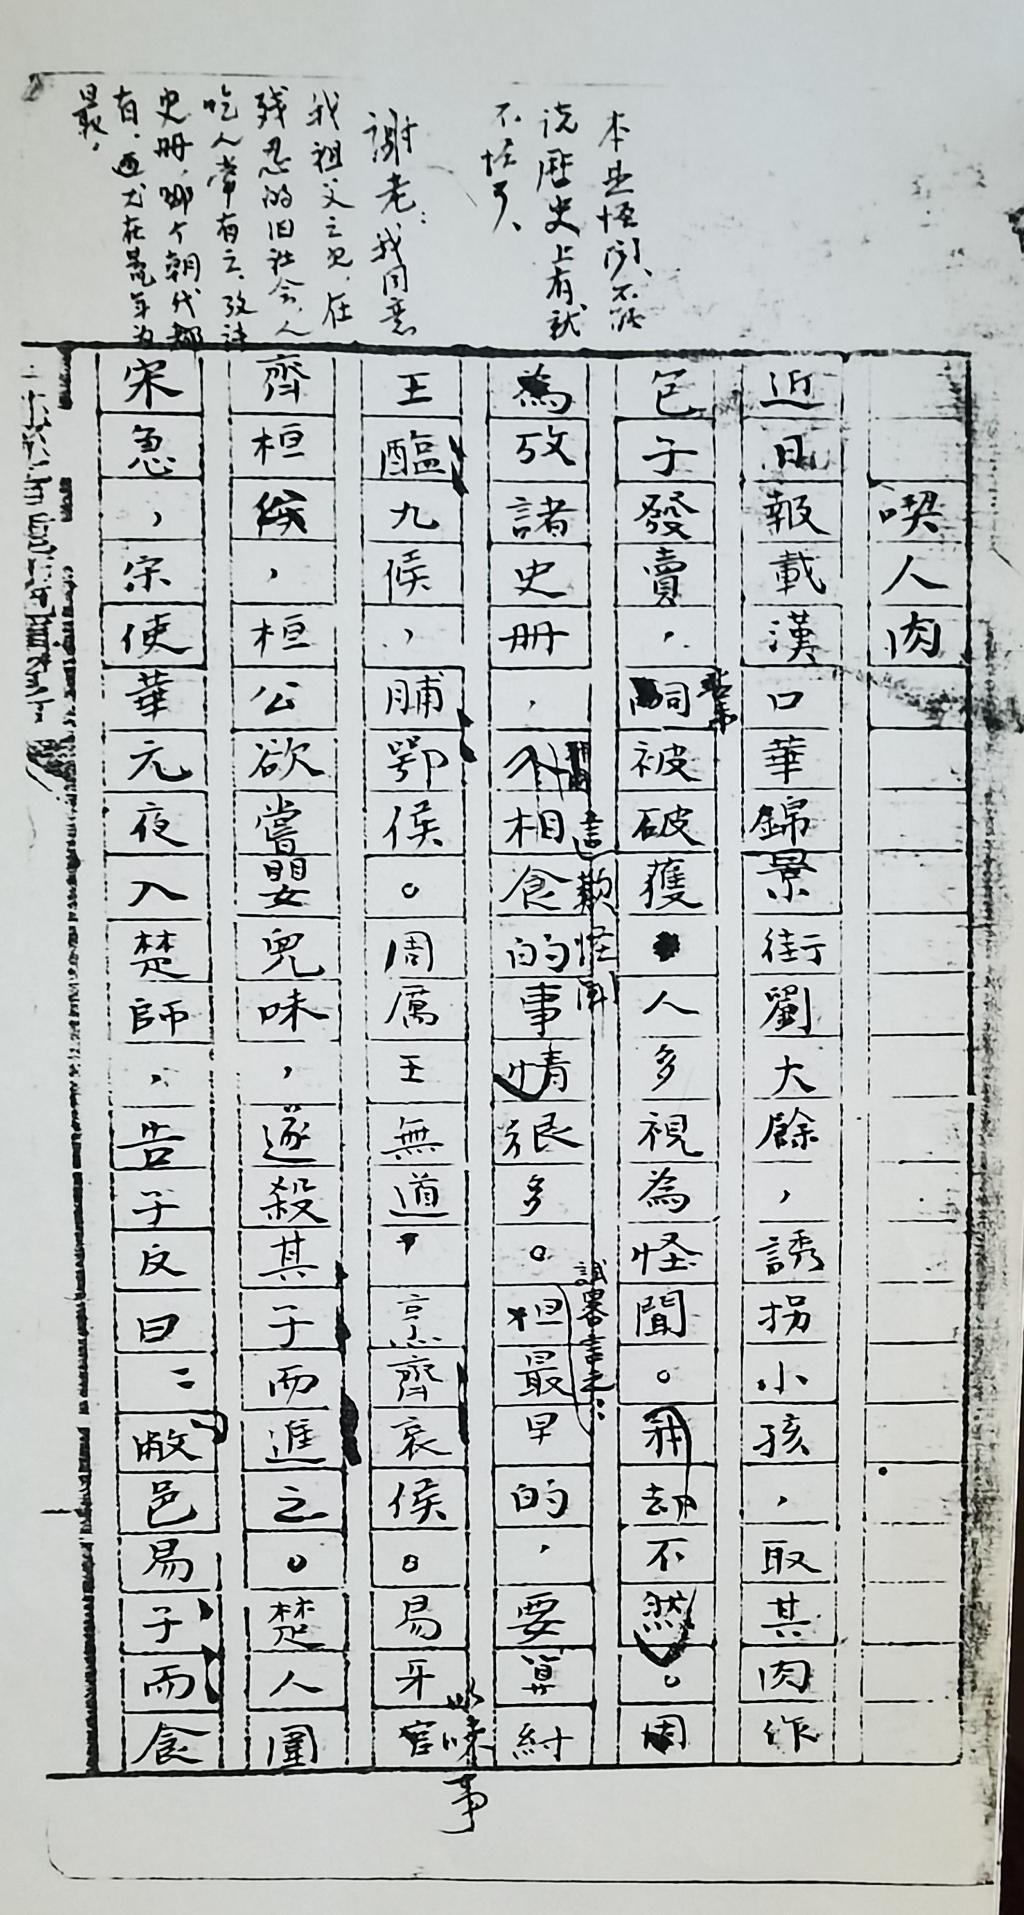 本是怪闻、不能
说歷史上有就
不怪了、
謝老：我同意
我祖父之见，在
残忍的旧社会，人
吃人常有之，攷诸
史册，哪个朝代都
有，
最，
喫人肉
近日報載漢口華錦景街劉大餘，誘拐小孩，取其肉作
包子發賣，嗣被破獲人多視為怪聞。我却不然。因
為攷諸史册，人相食的事情很多。但最早的，要算紂
書
歎怪聞
試畧言之：
王醢九侯，脯鄂侯。周厲王無道，烹齊哀侯。易牙
以味事
齊桓侯，桓公欲嘗嬰兒味，遂殺其子而進之。楚人圍
宋急，宋使華元夜入楚師，告子反曰：敝邑易子而食